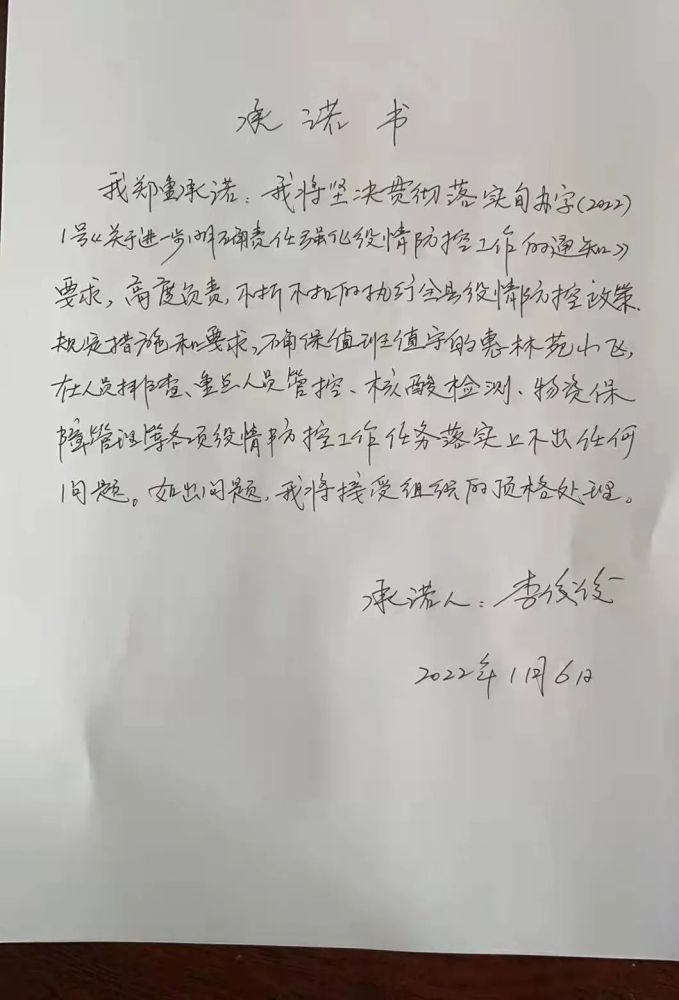 承诺书
我郑重承诺：我将坚决贯彻落实旬办字(2022)
1号《关于进一步明确责任强化疫情防控工作的通知》
要求，高度负责，不折不扣的执行全县疫情防控政策.
规定措施和要求，确保值班值守的惠林苑小区，
在人员排查、重点人员管控、核酸检测、物资保
障管理等各项疫情防控工作任务落实上不出任何
问题。如出问题，我将接受组织的顶格处理。
承诺人：李俊
2022年1月6日